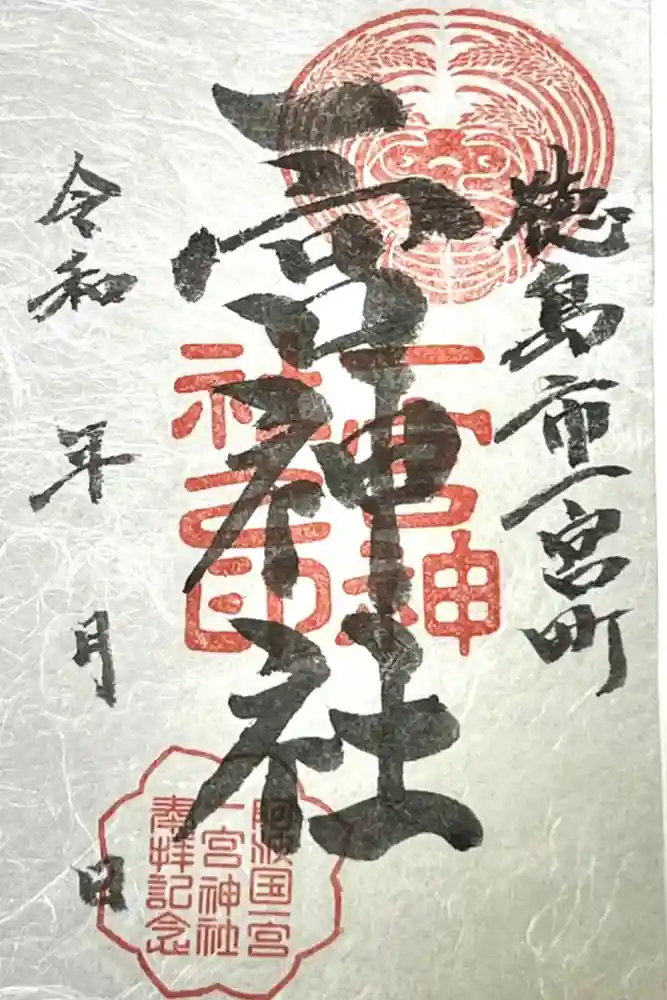 徳島市一宮町
一宮神社
令和　年　月　日
一宮神
社之印
阿波国一宮
一宮神社
奉拝記念